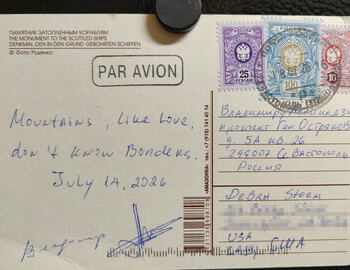 ПАМЯТНИК ЗАТОПЛЕННЫМ КОРАБЛЯМ
THE MONUMENT TO THE SCUTTLED SHIPS
DENKMAL DEN IN DEN GRUND GEBOHRTEN SCHIFFEN
© Фото: Руденко
PAR AVION
25
100
10
Mountains, Like Love,
don't know Borders.
July 14, 2026
Владимир
«АМАЗОНКА» тел.: +7 (978) 741 45 14
Владимир
проспект Ген. Острякова
д. 5А кв. 26
299007 Севастополь
Россия
Debra Storm
USA
США